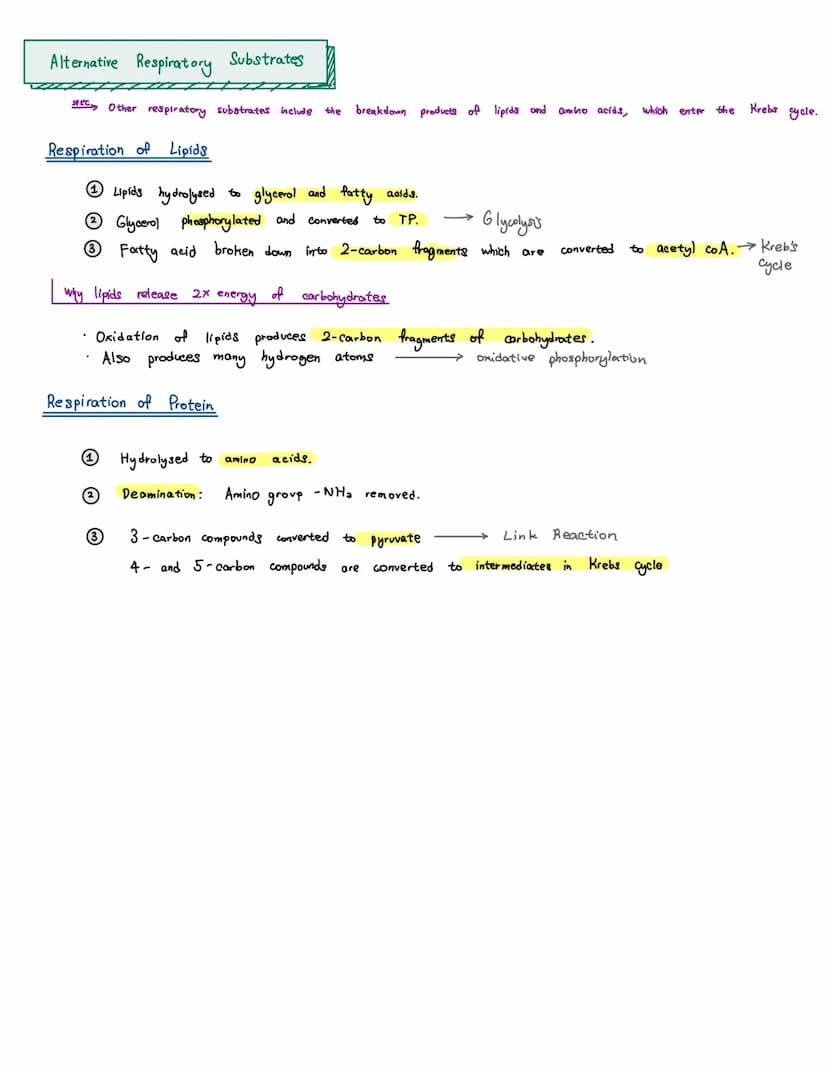 Alternative Respiratory Substrates
SPEC → Other respiratory substrates include the breakdown products of lipids and amino acids, which enter the Krebs cycle.
Respiration of Lipids
① Lipids hydrolysed to glycerol and fatty acids.
② Glycerol phosphorylated and converted to TP. → Glycolysis
③ Fatty acid broken down into 2-carbon fragments which are converted to acetyl coA. → Kreb's
Cycle
Why lipids release 2x energy of carbohydrates
· Oxidation of lipids produces 2-carbon fragments of carbohydrates.
· Also produces many hydrogen atoms → oxidative phosphorylation
Respiration of Protein
① Hydrolysed to amino acids.
② Deamination: Amino group -NH₂ removed.
③ 3-carbon compounds converted to pyruvate → Link Reaction
4- and 5-carbon compounds are converted to intermediates in Krebs cycle